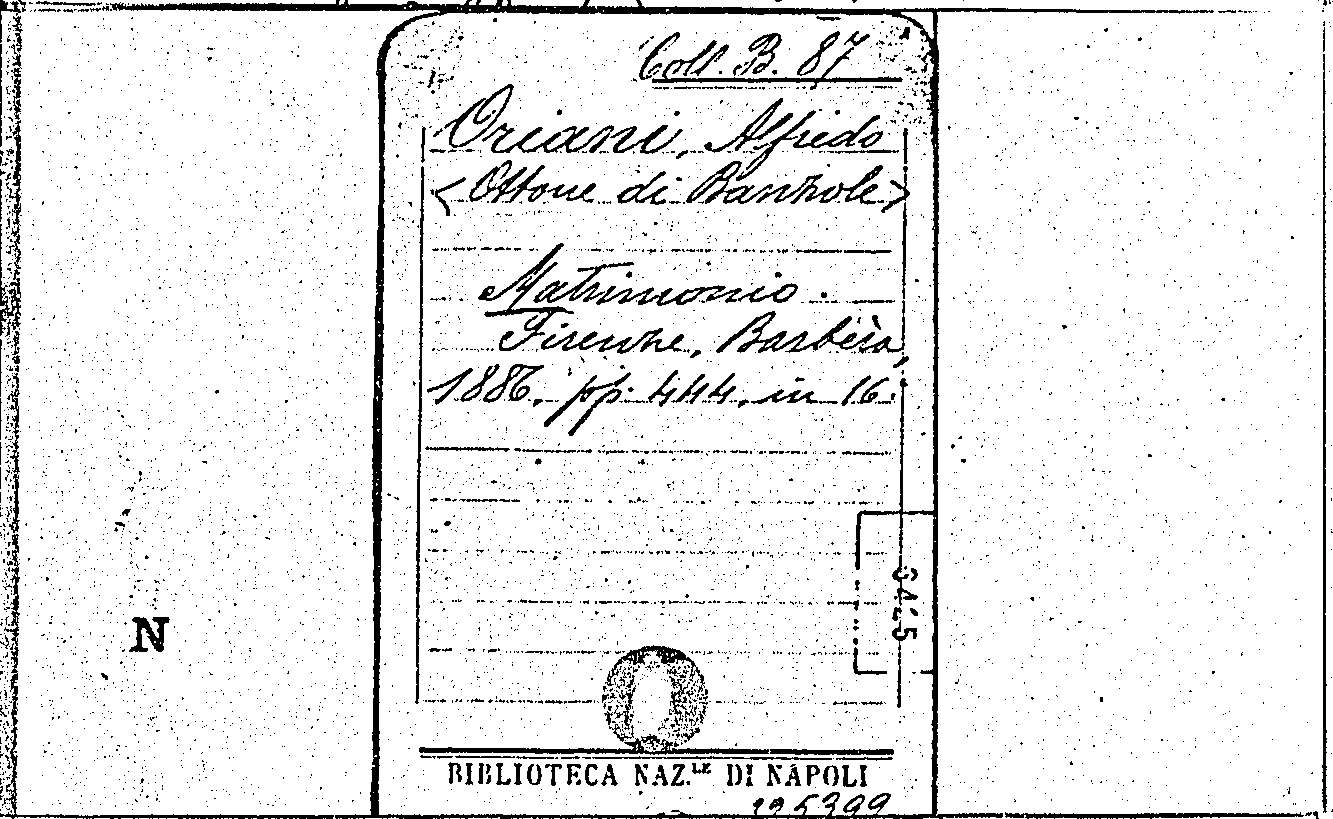 Coll. B. 87
Oriani, Alfredo
<Ottone di Banzole>
Matrimonio.
Firenze, Barbèra,
1886. pp. 444. in 16.
N
BIBLIOTECA NAZ.LE DI NAPOLI